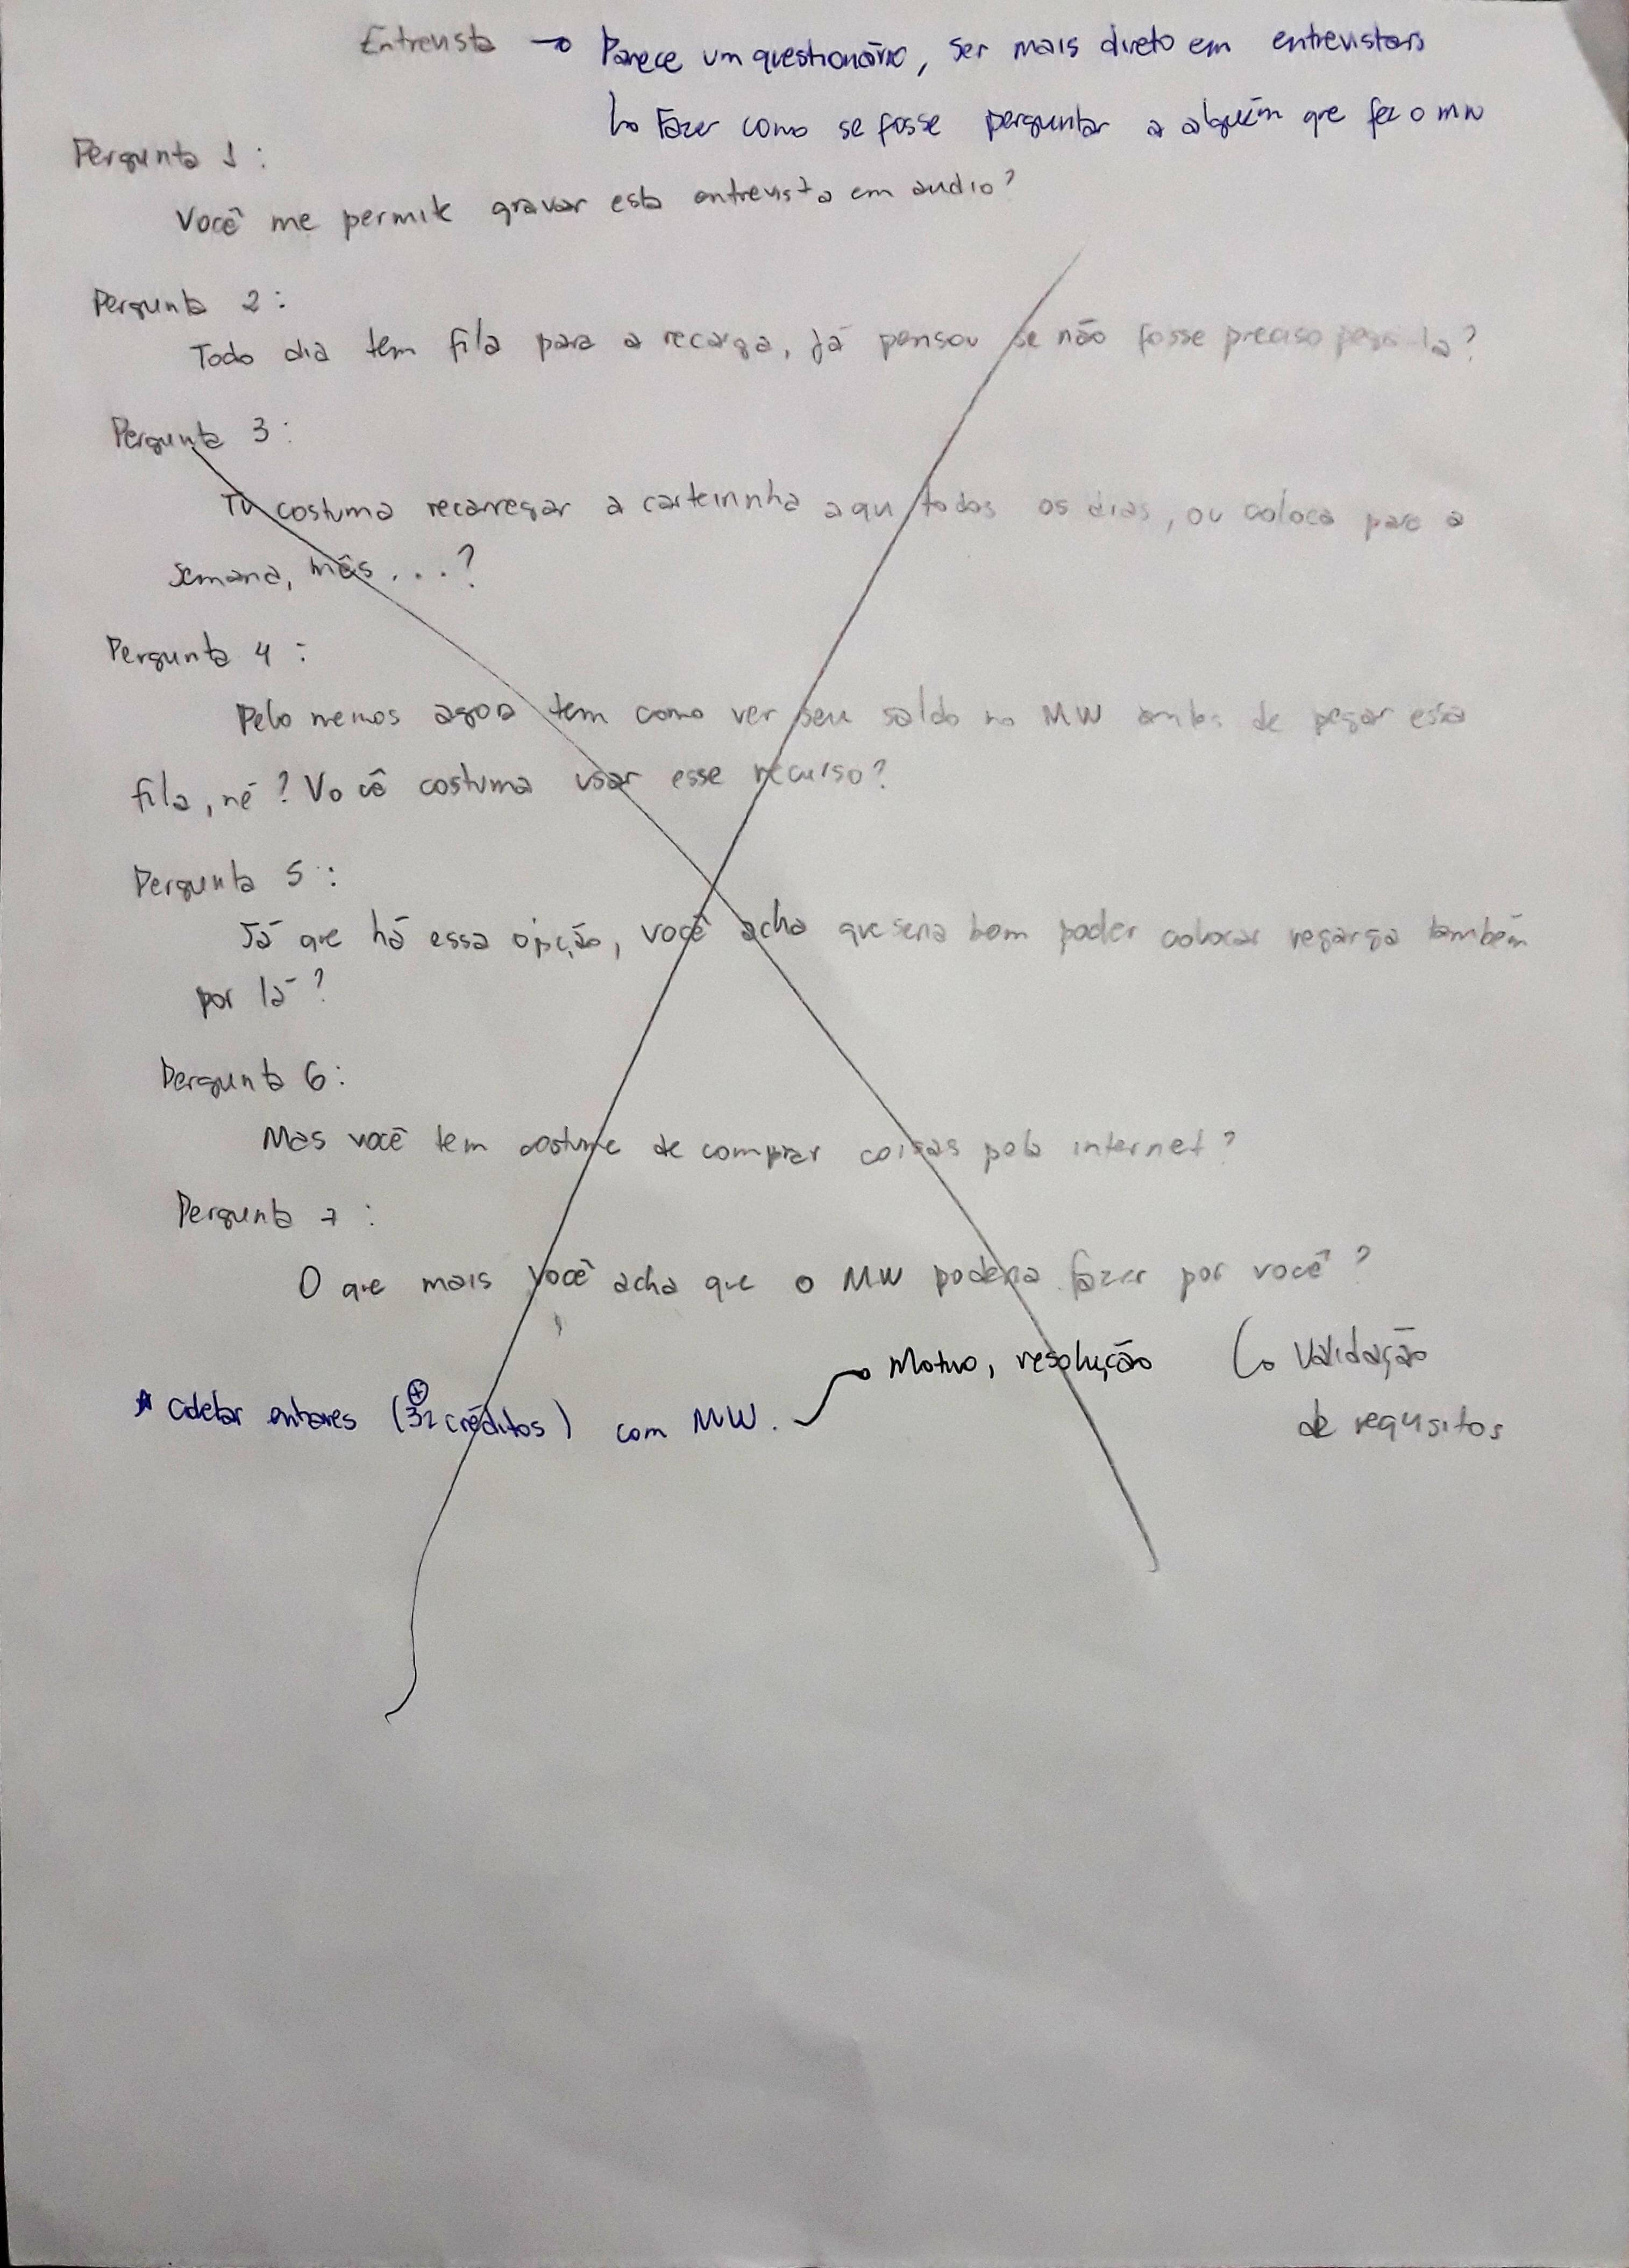 Entrevista → Parece um questionário, ser mais direto em entrevistas
↳ Fazer como se fosse perguntar a alguém que fez o MW
Pergunta 1 :
Você me permite gravar esta entrevista em áudio?
Pergunta 2 :
Todo dia tem fila para a recarga, já pensou se não fosse preciso pegá-la?
Pergunta 3 :
Tu costuma recarregar a carteirinha aqui todos os dias, ou coloca para a
semana, mês . . . ?
Pergunta 4 :
Pelo menos agora tem como ver seu saldo no MW antes de pegar essa
fila, né ? Você costuma usar esse recurso?
Pergunta 5 :
Já que há essa opção, você acha que seria bom poder colocar regarga também
por lá ?
Pergunta 6 :
Mas você tem costume de comprar coisas pela internet ?
Pergunta 7 :
O que mais você acha que o MW poderia fazer por você ?
→ Motivo, resolução
↳ Validação
de requisitos
(+ 32 créditos) com MW.